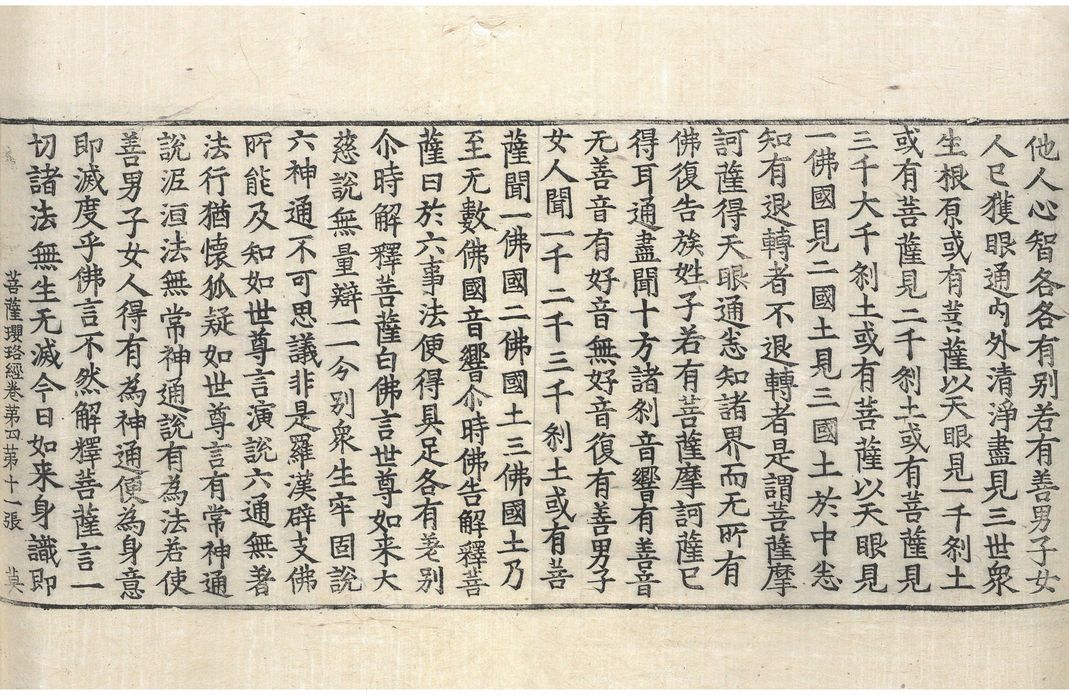 他人心智各各有别若有善男子女
人已獲眼通内外清淨盡見三世衆
生根原或有菩薩以天眼見一千刹土
或有菩薩見二千刹土或有菩薩見
三千大千刹土或有菩薩以天眼見
一佛國見二國土見三國土於中悉
知有退轉者不退轉者是謂菩薩摩
訶薩得天眼通悉知諸界而无所有
佛復告族姓子若有菩薩摩訶薩已
得耳通盡聞十方諸刹音響有善音
无善音有好音無好音復有善男子
女人聞一千二千三千刹土或有菩
薩聞一佛國二佛國土三佛國土乃
至无數佛國音響尒時佛告解釋菩
薩曰於六事法便得具足各有差别
尒時解釋菩薩白佛言世尊如来大
慈說無量辯一一分别衆生牢固說
六神通不可思議非是羅漢辟支佛
所能及知如世尊言演說六通無著
法行猶懷狐疑如世尊言有常神通
說泥洹法無常神通說有為法若使
善男子女人得有為神通便為身意
即滅度乎佛言不然解釋菩薩言一
切諸法無生无滅今日如来身識即
菩薩瓔珞經卷第四第十一張 莫